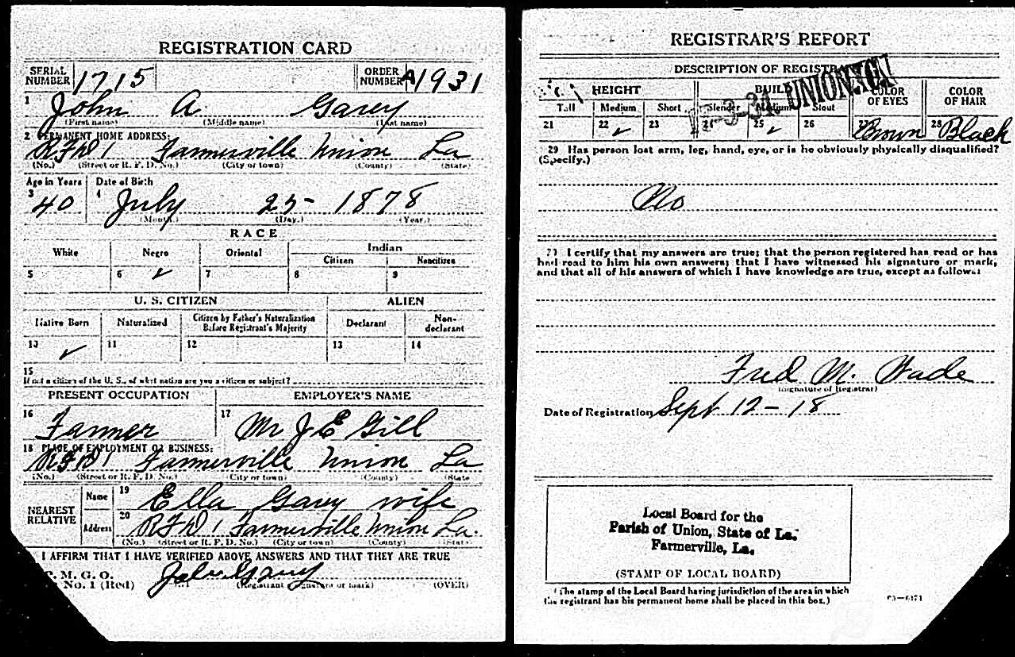 REGISTRATION CARD
SERIAL NUMBER 1715 ORDER NUMBER A1931
1 John A Garey
(First name) (Middle name) (Last name)
2 PERMANENT HOME ADDRESS:
RFD 1 Farmerville Union La
(No.) (Street or R. F. D. No.) (City or town) (County) (State)
Age in Years Date of Birth
3 40 4 July 25- 1878
(Month.) (Day.) (Year.)
RACE
White Negro Oriental Indian
Citizen Noncitizen
5 6 ✓ 7 8 9
U. S. CITIZEN ALIEN
Native Born Naturalized Citizen by Father's Naturalization Before Registrant's Majority Declarant Non-declarant
10 ✓ 11 12 13 14
15
If not a citizen of the U. S., of what nation are you a citizen or subject?
PRESENT OCCUPATION EMPLOYER'S NAME
16 Farmer 17 Mr J E Gill
18 PLACE OF EMPLOYMENT OR BUSINESS:
RFD 1 Farmerville Union La
(No.) (Street or R. F. D. No.) (City or town) (County) (State
NEAREST RELATIVE Name 19 Ella Garey wife
Address 20 RFD 1 Farmerville Union La.
(No.) (Street or R. F. D. No.) (City or town) (County) (State)
I AFFIRM THAT I HAVE VERIFIED ABOVE ANSWERS AND THAT THEY ARE TRUE
P. M. G. O.
No. 1 (Red) John Garey
(Registrant signature or mark) (OVER)
REGISTRAR'S REPORT
DESCRIPTION OF REGISTRANT
HEIGHT BUILD COLOR OF EYES COLOR OF HAIR
Tall Medium Short Slender Medium Stout
21 22 ✓ 23 24 25 ✓ 26 27 Brown 28 Black
29 Has person lost arm, leg, hand, eye, or is he obviously physically disqualified?
(Specify.)
No
I certify that my answers are true; that the person registered has read or has
had read to him his own answers; that I have witnessed his signature or mark,
and that all of his answers of which I have knowledge are true, except as follows:
Fred M. Wade
(Signature of Registrar)
Date of Registration Sept 12-18
Local Board for the
Parish of Union, State of La.
Farmerville, La.
(STAMP OF LOCAL BOARD)
(The stamp of the Local Board having jurisdiction of the area in which
the registrant has his permanent home shall be placed in this box.)